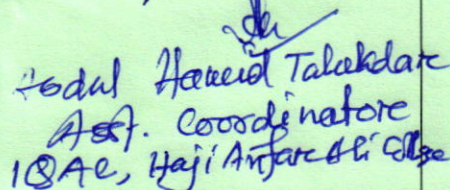 Abdul Hamid Talukdare
Asst. Coordinatore
IQAC, Haji Anfare Ali College